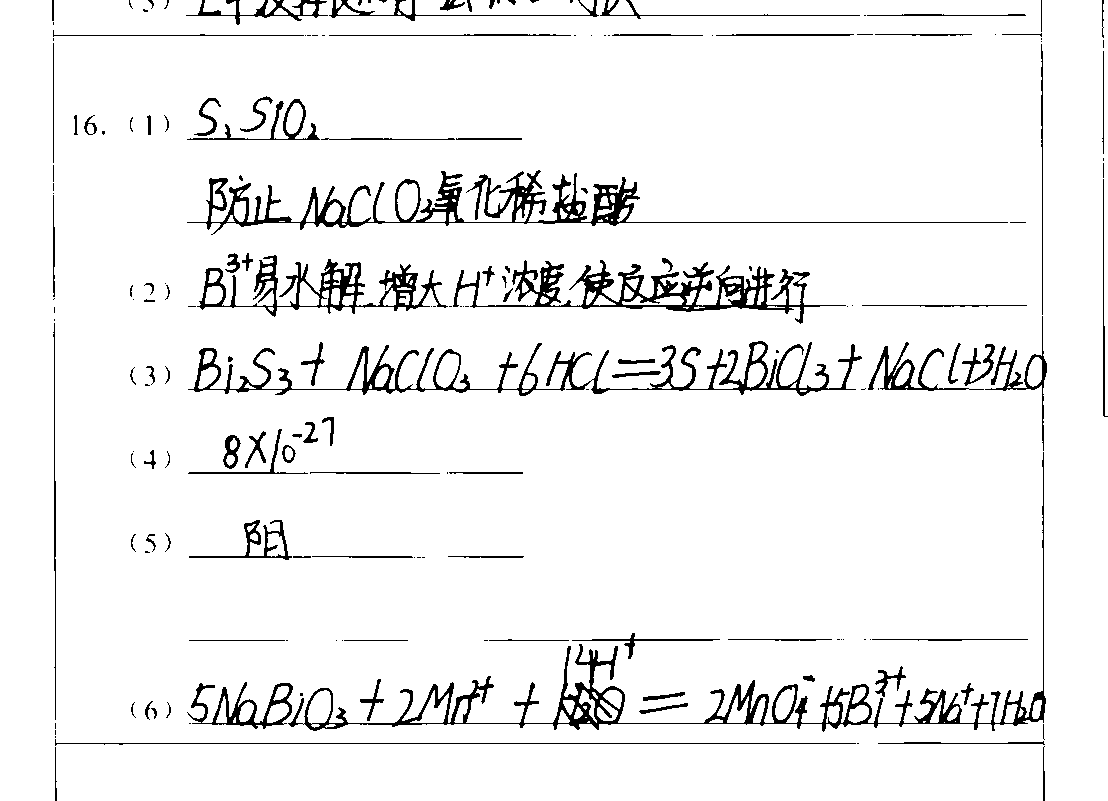 (3)
16. (1) S、SiO₂
防止 NaClO₃氧化稀盐酸
(2) Bi³⁺易水解,增大H⁺浓度,使反应逆向进行
(3) Bi₂S₃ + NaClO₃ + 6HCl = 3S + 2BiCl₃ + NaCl + 3H₂O
(4) 8×10⁻²⁷
(5) 阳
(6) 5NaBiO₃ + 2Mn²⁺ + 14H⁺ = 2MnO₄⁻ + 5Bi³⁺ + 5Na⁺ + 7H₂O